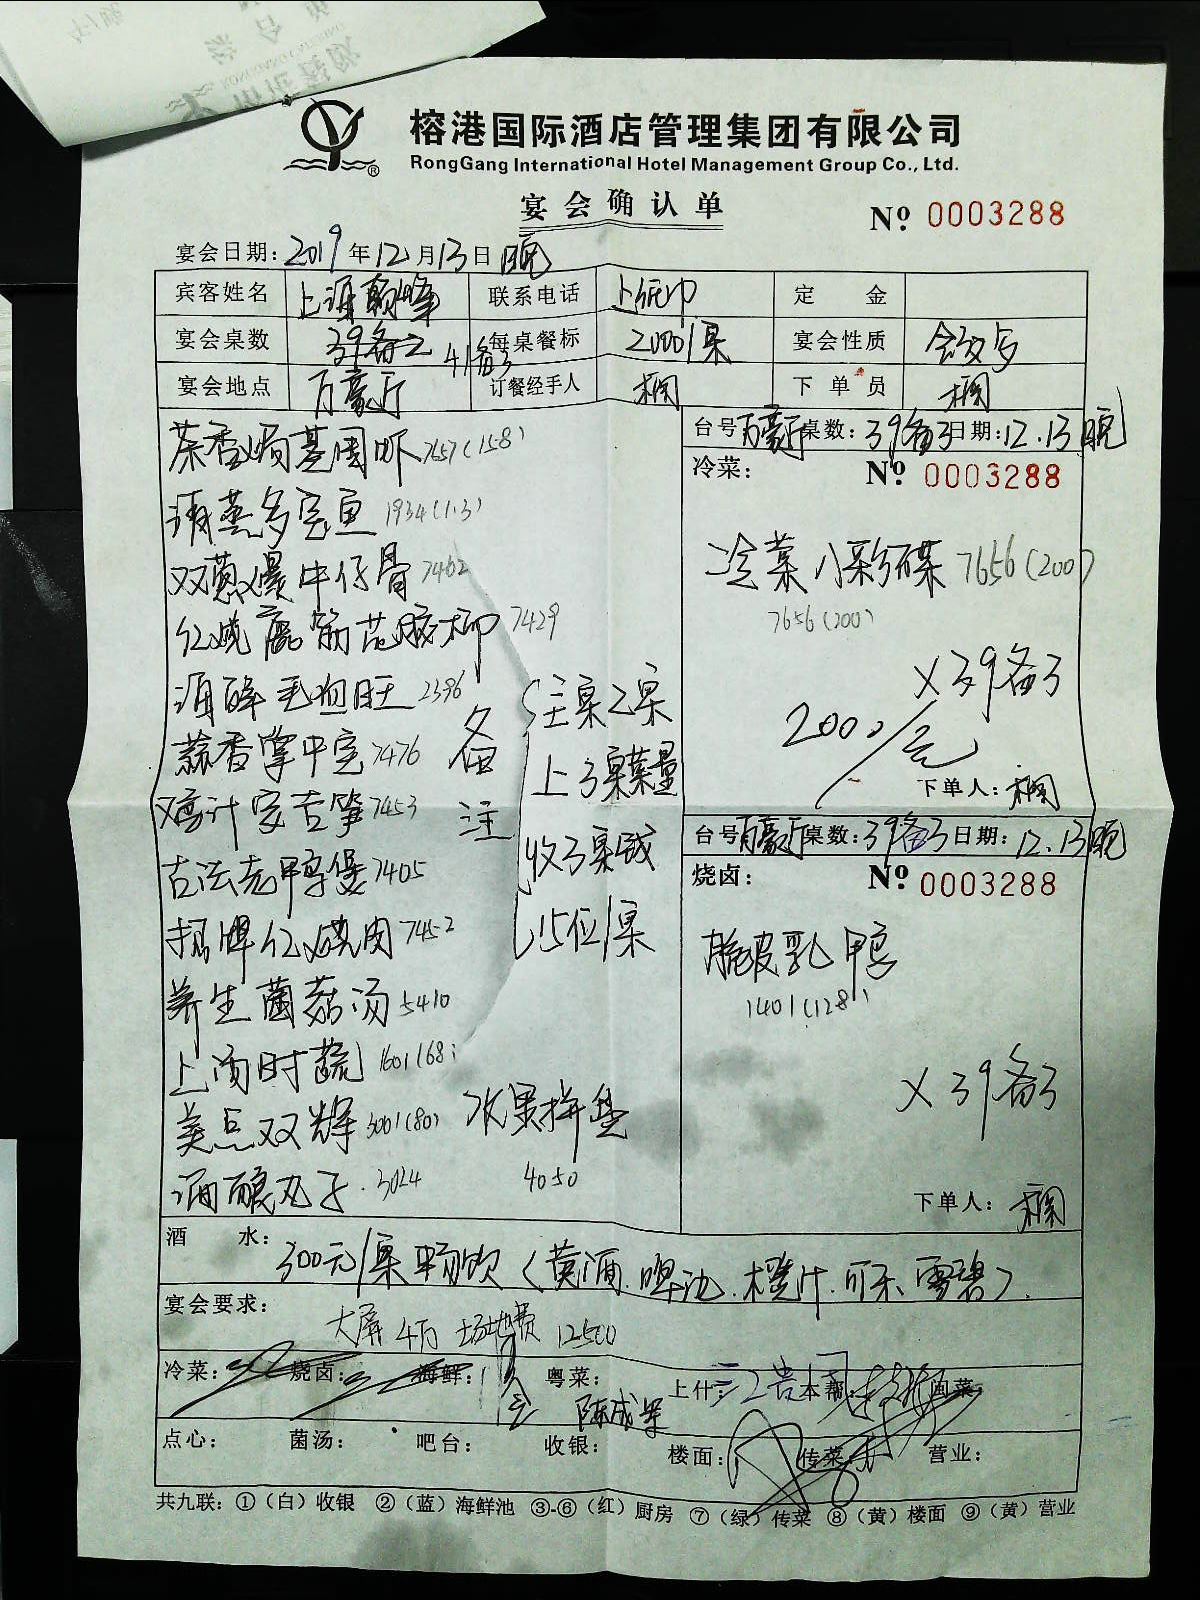 榕港国际酒店管理集团有限公司
RongGang International Hotel Management Group Co., Ltd.
宴会确认单
№ 0003288
宴会日期: 2019年12月13日 晚
宾客姓名 上海翰峰 联系电话 定金
宴会桌数 39备2 41备3 每桌餐标 2000/桌 宴会性质
宴会地点 万豪厅 订餐经手人 下单员
台号 万豪厅 桌数: 39备3 日期: 12.13晚
冷菜: № 0003288
冷菜八彩碟 7656(200)
7656(200)
×39备3
2000/元
下单人:
茶香焗基围虾 7657(158)
清蒸多宝鱼 1934(1.3)
双葱爆牛仔骨 7462
红烧蹄筋花胶柳 7429
酒醉毛血旺 2396
蒜香掌中宝 7476
鸡汁家吉笋 7453
古法老鸭煲 7405
招牌红烧肉 7452
养生菌菇汤 5410
上汤时蔬 1601(68)
美点双辉 3001(80) 水果拼盘
酒酿丸子 3024 4050
备注
主桌2桌
上3桌菜量
收3桌钱
15位/桌
台号 万豪厅 桌数: 39备3 日期: 12.13晚
烧卤: № 0003288
脆皮乳鸭
1401(128)
×39备3
下单人:
酒水: 300元/桌畅饮(黄酒.啤酒.橙汁.可乐.雪碧).
宴会要求: 大屏4万 场地费 12500
冷菜: 烧卤: 海鲜: 粤菜: 上什: 本帮: 闽菜:
点心: 菌汤: 吧台: 收银: 楼面: 传菜: 营业:
共九联: ①(白)收银 ②(蓝)海鲜池 ③-⑥(红)厨房 ⑦(绿)传菜 ⑧(黄)楼面 ⑨(黄)营业